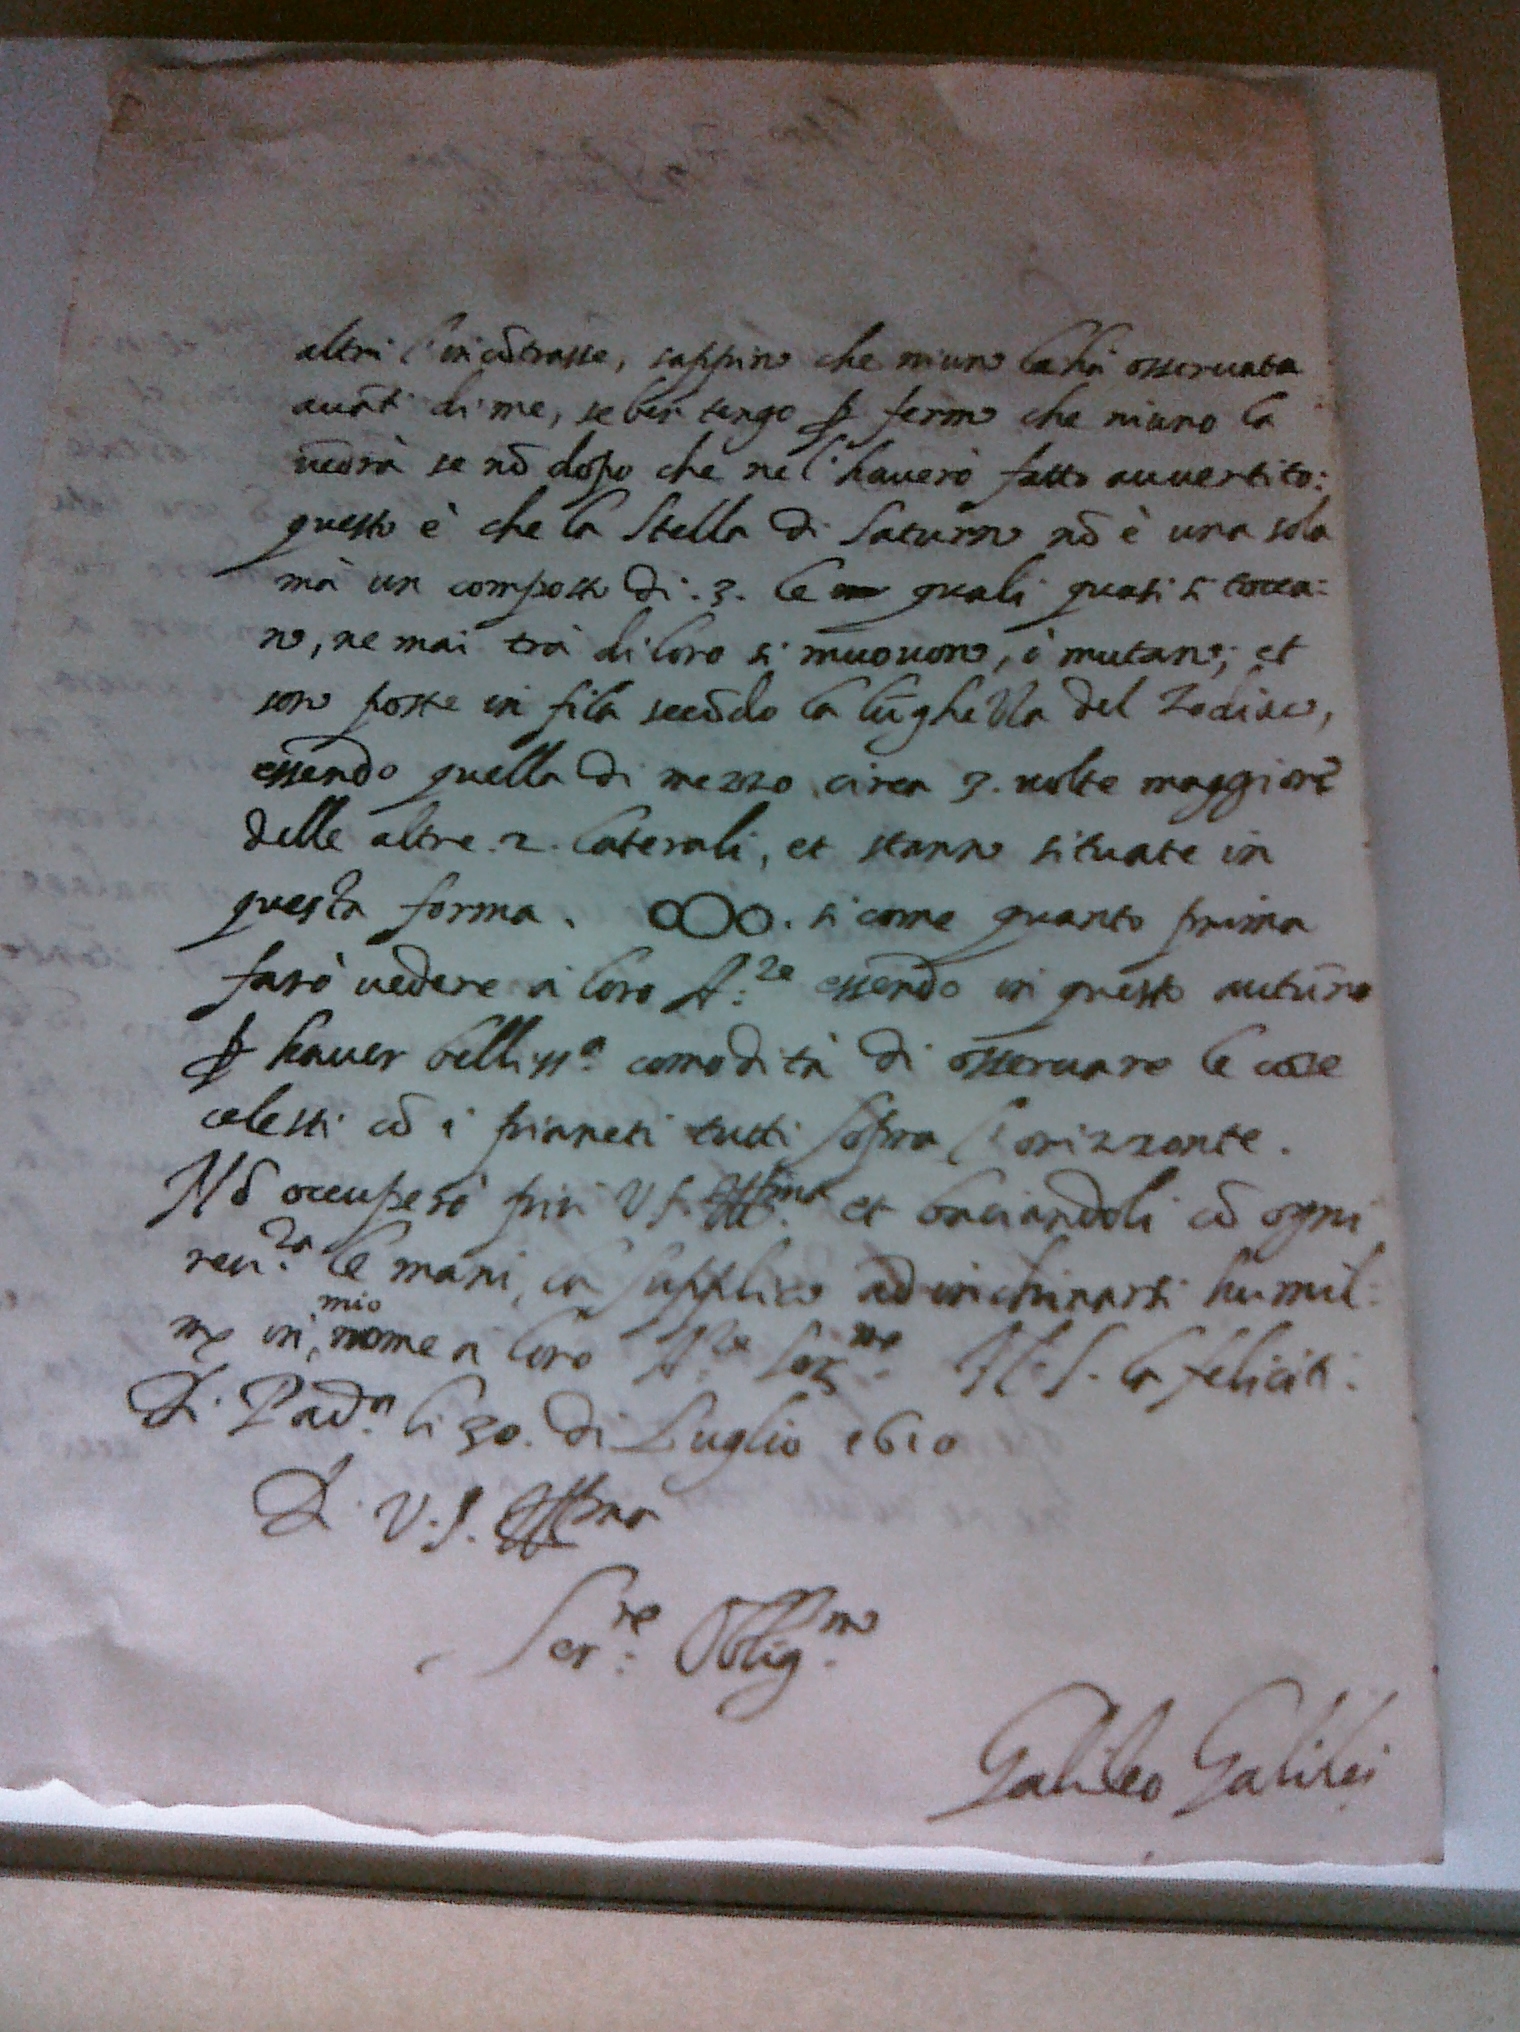 altri l'incōtrasse, sappino che niuno la hà osseruata
auāti di me, se ben tengo ꝑ fermo che niuno la
uedrà se nō dopo che ne l'hauerò fatto auuertito:
questo è che la Stella di Saturno nō è una sola
mà un composto di .3. le quali quasi si tocca:
no, ne mai trà di loro si muouono, ò mutano; et
sono poste in fila secōdo la lūghezza del Zodiaco,
essendo quella di mezzo circa 3. uolte maggiore
delle altre .2. laterali, et stanno situate in
questa forma. oOo. si come quanto prima
farò uedere à loro A:ze essendo in questo autūno
ꝑ hauer belliss.a comodità di osseruare le cose
celesti cō i pianeti tutti sopra l'orizzonte.
Nō occuperò più V.S. Ill.ma et baciandoli cō ogni
reu.za le mani, la supplico ad inchinarsi humil:
me in mio nome a loro A.ze Ser.me N.S. la feliciti.
Di Pad.a li 30. di Luglio 1610
Di V.S. Ill.ma
Ser:re Oblig.mo
Galileo Galilei